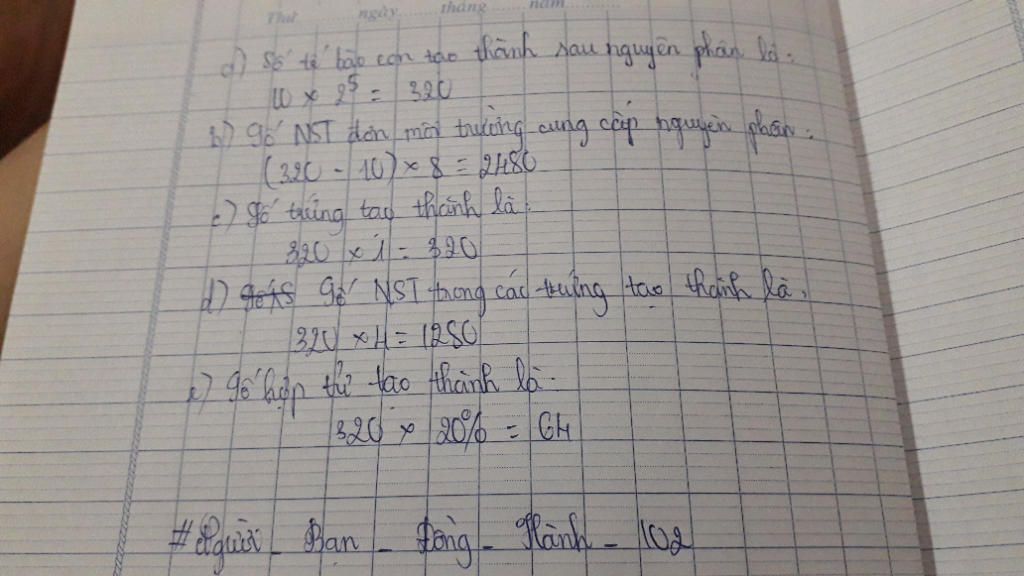 Thứ ngày tháng năm
a) Số tế bào con tạo thành sau nguyên phân là:
10 × 2⁵ = 320
b) Số NST đơn môi trường cung cấp nguyên phân:
(320 - 10) × 8 = 2480
c) Số trứng tạo thành là:
320 × 1 = 320
d) Số NST trong các trứng tạo thành là:
320 × 4 = 1280
e) Số hợp tử tạo thành là:
320 × 20% = 64
#Người_Bạn_Đồng_Hành_102